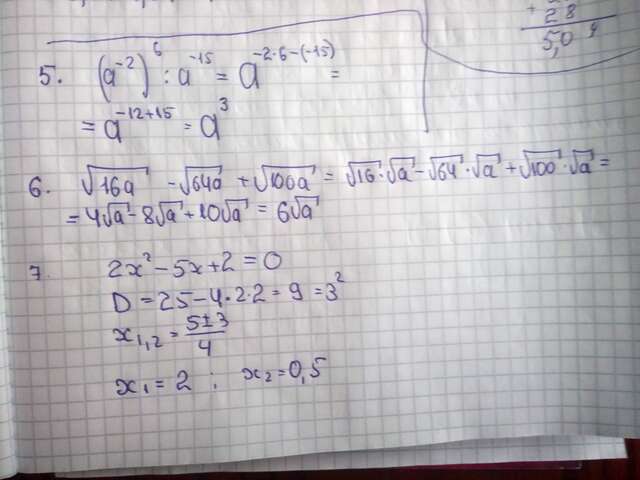 5. (a⁻²)⁶ : a⁻¹⁵ = a^(-2·6-(-15)) =
= a⁻¹²⁺¹⁵ = a³
6. √16a - √64a + √100a = √16·√a - √64·√a + √100·√a =
= 4√a - 8√a + 10√a = 6√a
7. 2x² - 5x + 2 = 0
D = 25 - 4·2·2 = 9 = 3²
x₁,₂ = (5±3)/4
x₁ = 2 ; x₂ = 0,5